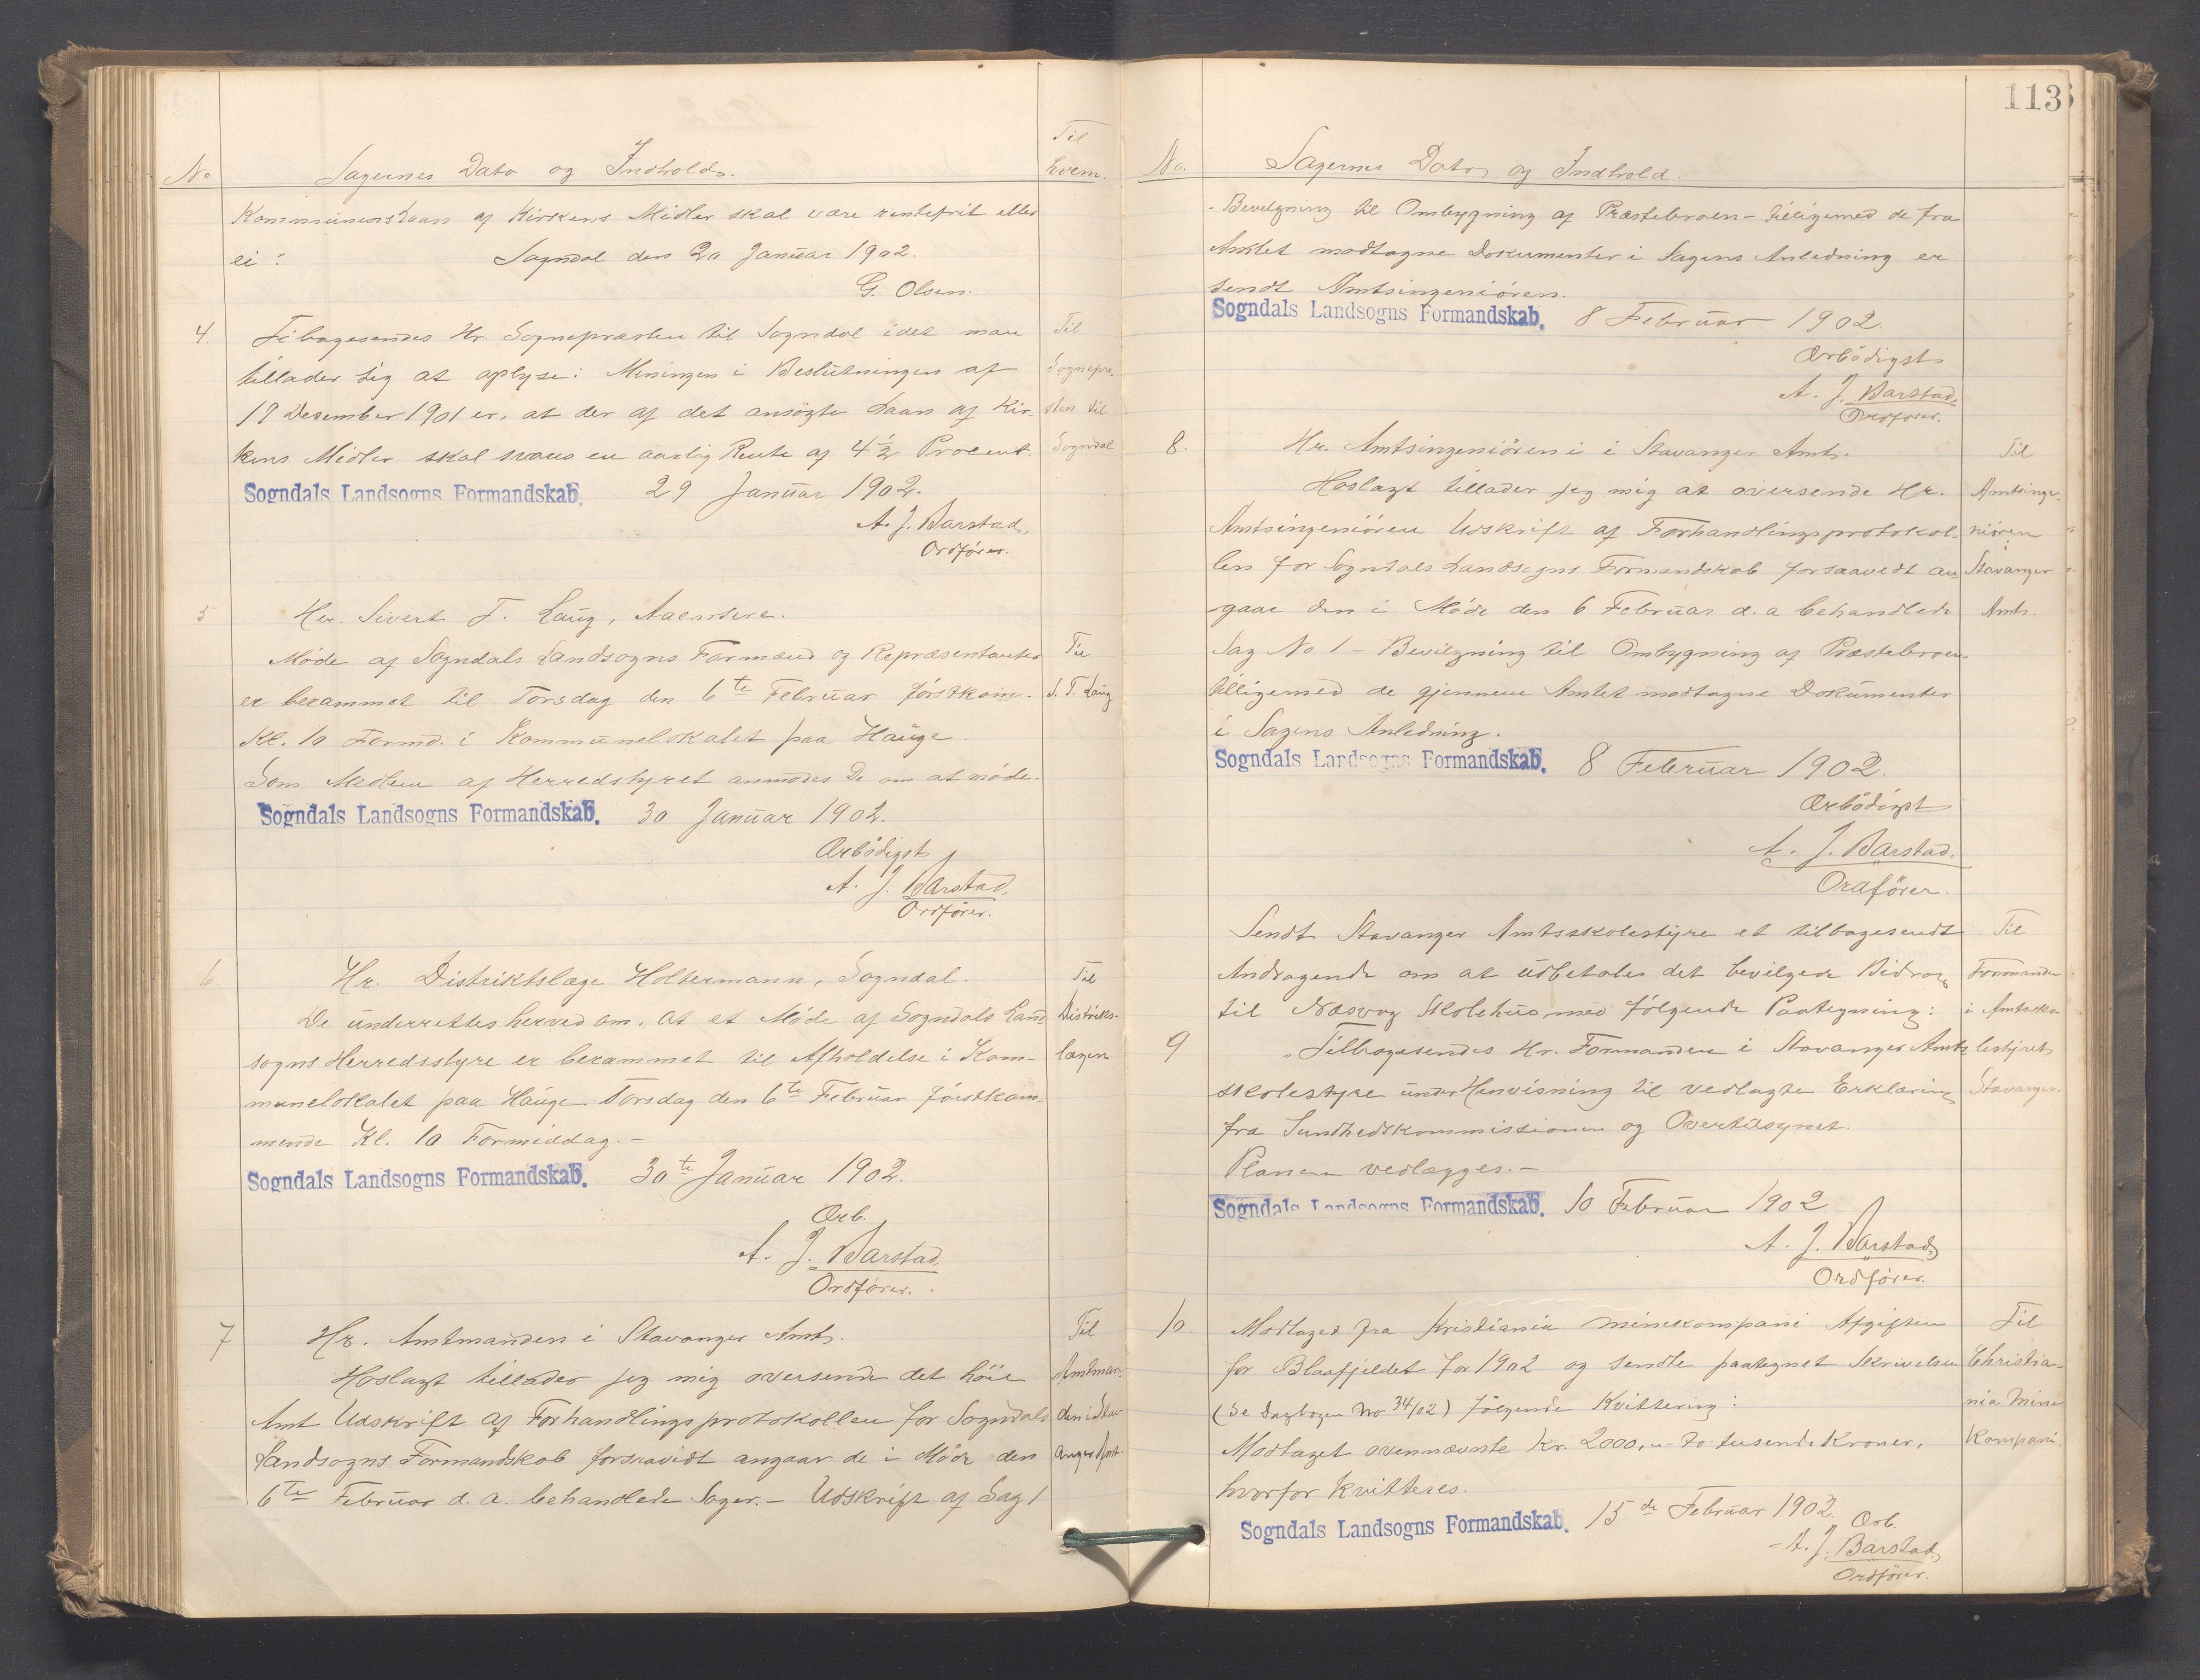 No
Sagernes Dato og Indhold.
Til
hvem.
Kommunens Laan af Kirkens Midler skal være rentefrit eller
ei".
Sogndal den 20 Januar 1902.
G. Olsen.
4
Tilbagesendes Hr. Sognepræsten til Sogndal idet man
tillader sig at oplyse: Meningen i Beslutningen af
19 Desember 1901 er, at der af det ansøgte Laan af Kir-
kens Midler skal svares en aarlig Rente af 4½ Procent.
Til
Sognepræ-
sten til
Sogndal
Sogndals Landsogns Formandskab. 29 Januar 1902.
A. J. Barstad,
Ordfører.
5
Hr. Sivert T. Laug, Aaensire.
Møde af Sogndals Landsogns Formænd og Repræsentanter
er berammet til Torsdag den 6te Februar førstkom.
Kl. 10 Formd. i Kommunelokalet paa Hauge.
Som Medlem af Herredstyret anmodes De om at møde.
Til
S. T. Laug
Sogndals Landsogns Formandskab. 30 Januar 1902.
Ærbødigst
A. J. Barstad,
Ordfører.
6
Hr. Distriktslæge Holtermann, Sogndal.
De underrettes herved om, at et Møde af Sogndals Land-
sogns Herredsstyre er berammet til Afholdelse i Kom-
munelokalet paa Hauge Torsdag den 6te Februar førstkom-
mende Kl. 10 Formiddag. –
Til
Distrikts-
lægen
Sogndals Landsogns Formandskab. 30te Januar 1902.
Ærb.
A. J. Barstad,
Ordfører.
7
Hr. Amtmanden i Stavanger Amt.
Hoslagt tillader jeg mig oversende det høie
Amt Udskrift af Forhandlingsprotokollen for Sogndals
Landsogns Formandskab forsaavidt angaar de i Møde den
6te Februar d. a. behandlede Sager. – Udskrift af Sag 1
Til
Amtman-
den i Stav-
anger Amt.
113
No.
Sagernes Dato og Indhold.
- Bevilgning til Ombygning af Præstebroen – tilligemed de fra
Amtet modtagne Dokumenter i Sagens Anledning er
sendt Amtsingeniøren.
Sogndals Landsogns Formandskab. 8 Februar 1902.
Ærbødigst
A. J. Barstad,
Ordfører.
8.
Hr. Amtsingeniøren i i Stavanger Amt.
Hoslagt tillader jeg mig at oversende Hr.
Amtsingeniøren Udskrift af Forhandlingsprotokol-
len for Sogndals Landsogns Formandskab forsaavidt an-
gaar den i Møde den 6 Februar d. a behandlede
Sag No 1 – Bevilgning til Ombygning af Præstebroen –
tilligemed de gjennem Amtet modtagne Dokumenter
i Sagens Anledning.
Til
Amtsinge-
niøren
i
Stavanger
Amt.
Sogndals Landsogns Formandskab. 8 Februar 1902.
Ærbødigst
A. J. Barstad,
Ordfører.
Sendt Stavanger Amtsskolestyre et tilbagesendt
Andragende om at udbetales det bevilgede Bidrag
til Næsvag Skolehus med følgende Paategning:
9
"Tilbagesendes Hr. Formanden i Stavanger Amts
skolestyre under Henvisning til vedlagte Erklæring
fra Sundhedskommissionen og Overtilsynet.
Planen vedlægges. –
Til
Formanden
i Amtssko-
lestyret
Stavanger.
Sogndals Landsogns Formandskab. 10 Februar 1902
A. J. Barstad,
Ordfører.
10.
Modtaget fra Kristiania minekompani Afgiften
for Blaafjeldet for 1902 og sendte paategnet Skrivelse
(se Dagbogen No 34/02) følgende Kvittering:
Modtaget ovennævnte Kr. 2000,- To tusende Kroner,
hvorfor kvitteres.
Til
Christia-
nia Mine
Kompani.
Sogndals Landsogns Formandskab. 15de Februar 1902.
Ærb.
A. J. Barstad,
Ordfører.